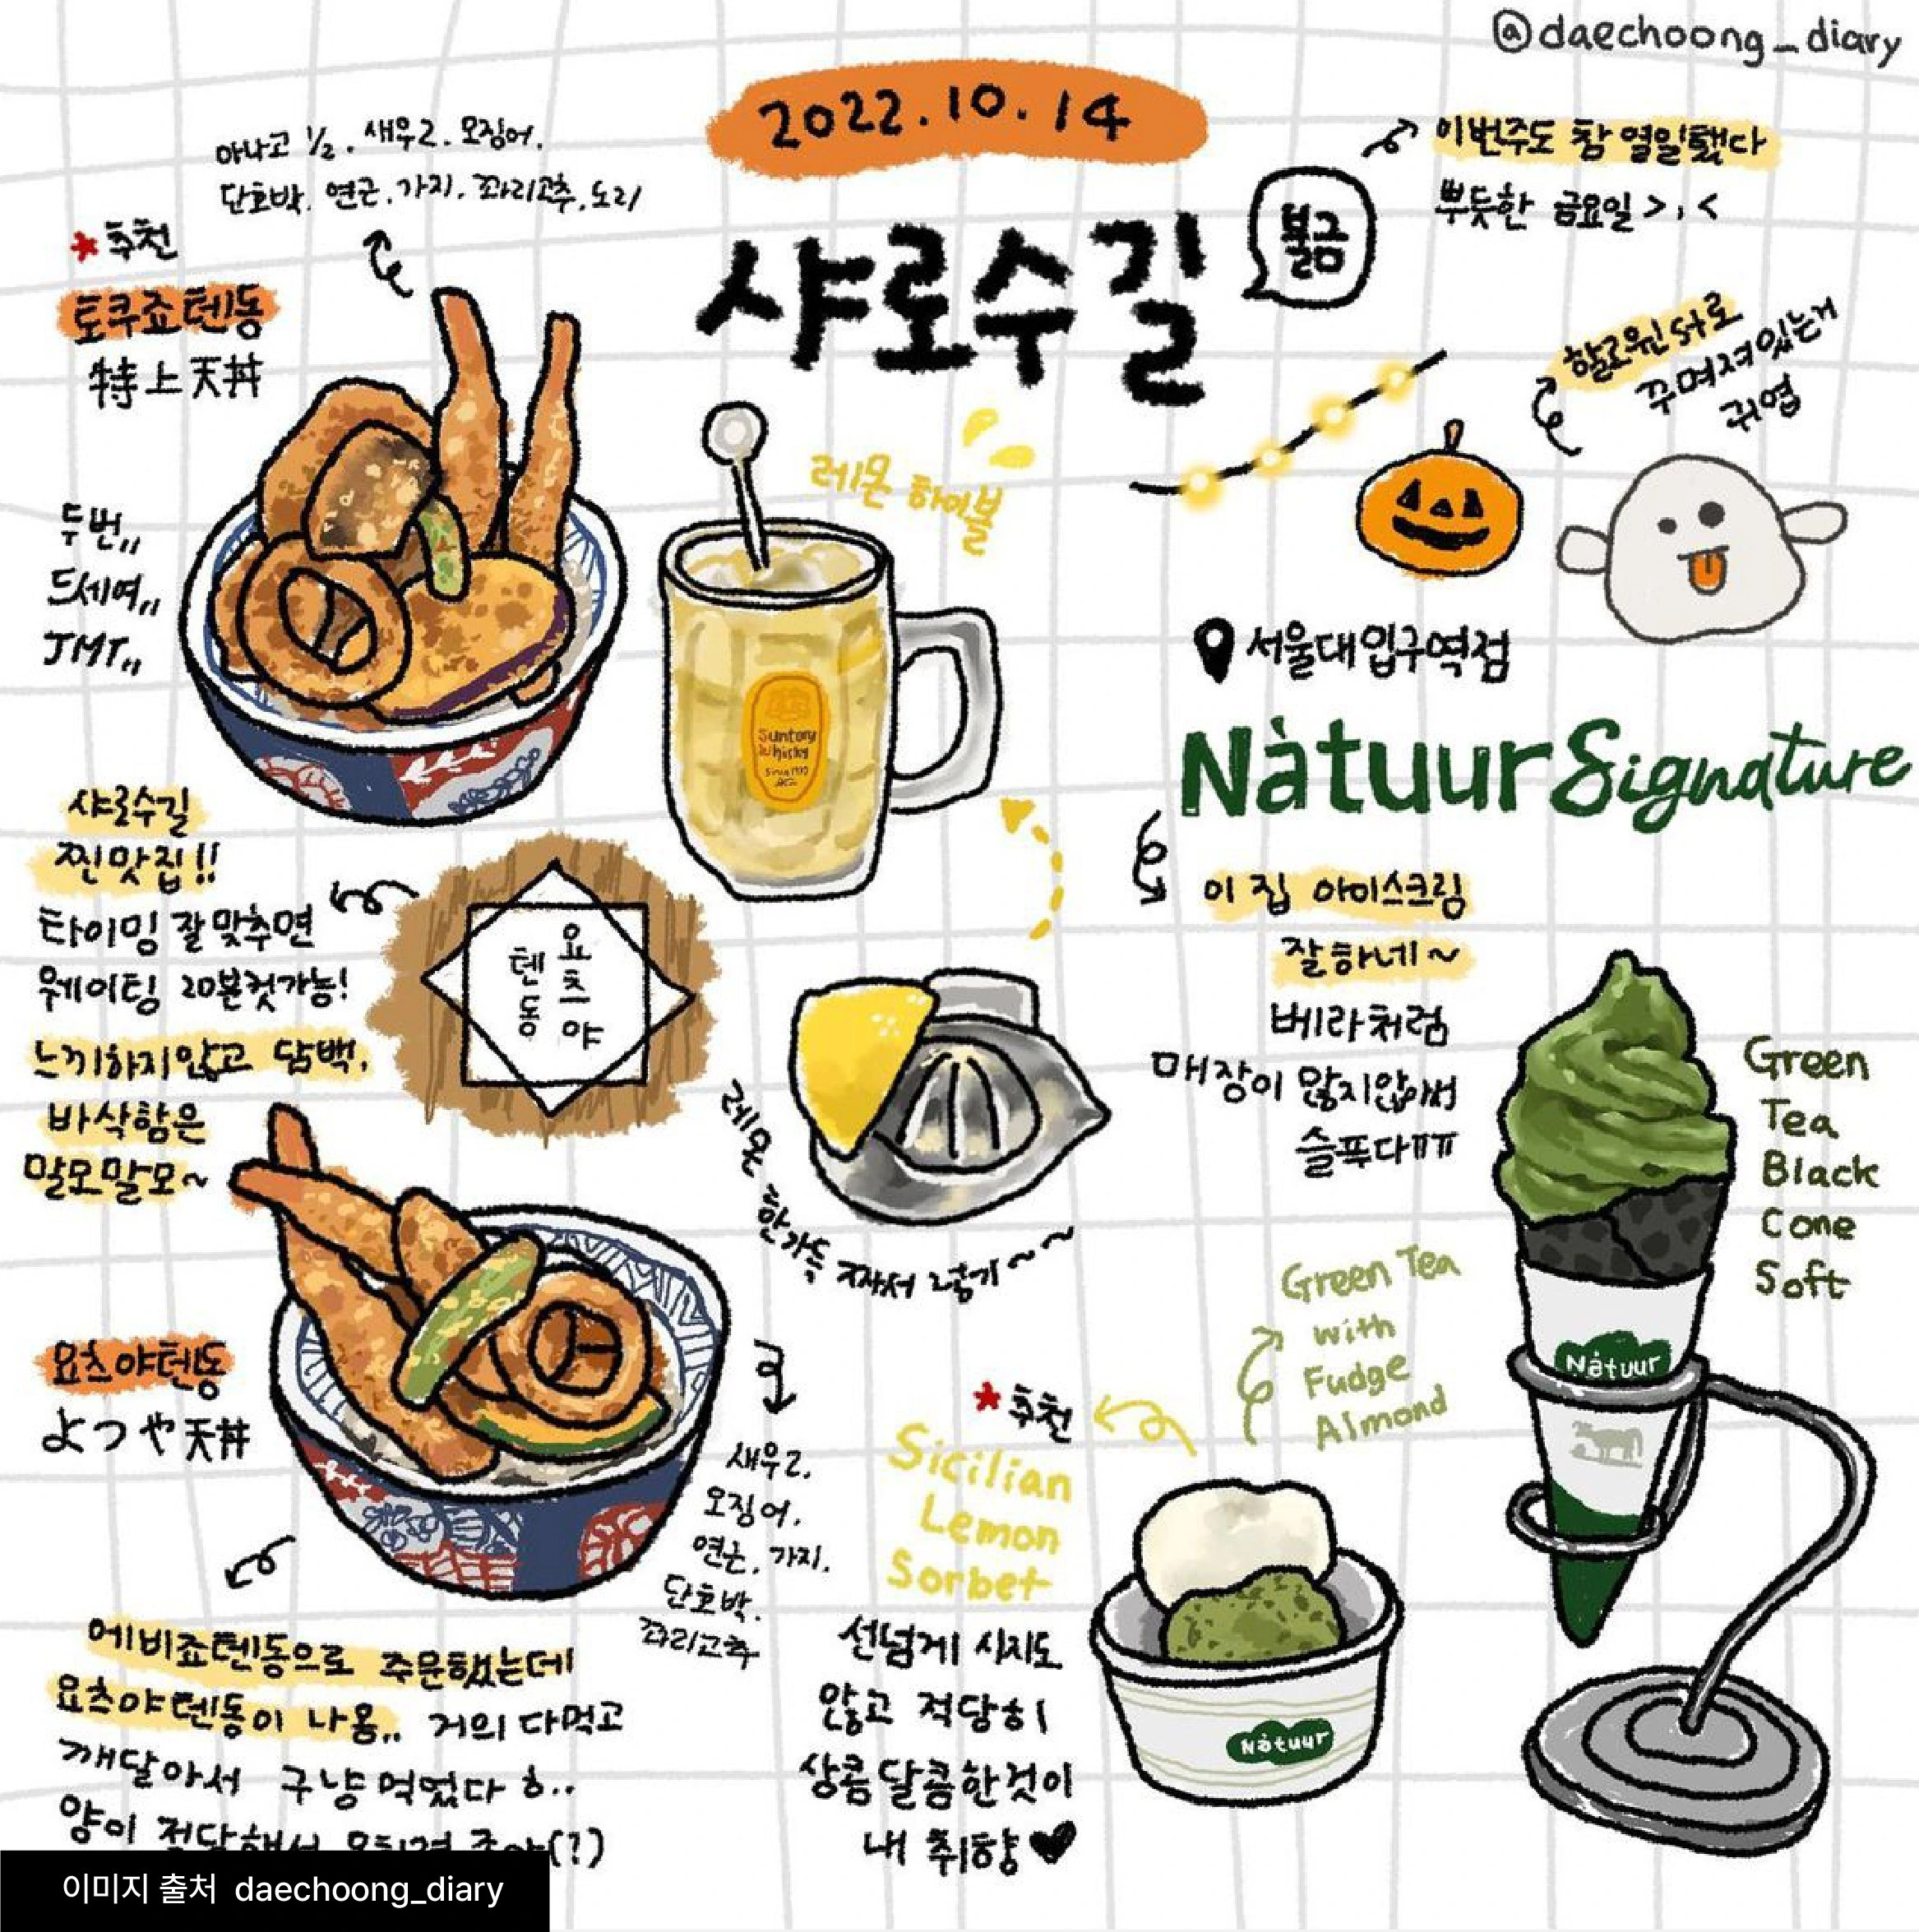 @daechoong_diary
2022.10.14
샤로수길
불금
이번주도 참 열일했다
뿌듯한 금요일 >,<
아나고 ½. 새우2. 오징어.
단호박. 연근. 가지. 꽈리고추. 노리
*추천
토쿠죠텐동
特上天丼
두번,,
드세여,,
JMT,,
레몬 하이볼
Suntory
Whisky
할로윈st로
꾸며져있는거
귀엽
서울대입구역점
Nàtuur Signature
이 집 아이스크림
잘하네~
베라처럼
매장이 많지않아써
슬푸다ㅠㅠ
샤로수길
찐맛집!!
타이밍 잘맞추면
웨이팅 20분컷가능!
느끼하지않고 담백.
바삭함은
말모말모~
요츠야
텐동
레몬 한가득 짜서 넣기~~
Green
Tea
Black
Cone
Soft
Nàtuur
Green Tea
with
Fudge
Almond
*추천
Sicilian
Lemon
Sorbet
선넘게 시지도
않고 적당히
상콤달콤한것이
내 취향♥
Nàtuur
요츠야텐동
よつや天丼
새우2.
오징어.
연근. 가지.
단호박.
꽈리고추
에비죠텐동으로 주문했는데
요츠야텐동이 나옴,, 거의 다먹고
깨달아서 구냥 먹었다 ㅎ..
양이 적당해서 오히려 좋아(?)
이미지 출처 daechoong_diary